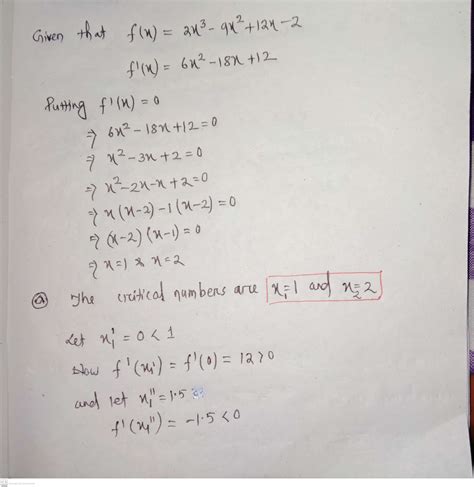 Given that f(x) = 2x³ - 9x² + 12x - 2
f'(x) = 6x² - 18x + 12
Putting f'(x) = 0
⇒ 6x² - 18x + 12 = 0
⇒ x² - 3x + 2 = 0
⇒ x² - 2x - x + 2 = 0
⇒ x(x-2) - 1(x-2) = 0
⇒ (x-2)(x-1) = 0
⇒ x = 1 & x = 2
ⓐ The critical numbers are x₁ = 1 and x₂ = 2
Let x₁' = 0 < 1
Now f'(x₁') = f'(0) = 12 > 0
and let x₁'' = 1.5
f'(x₁'') = -1.5 < 0